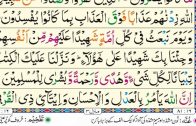 زِدْنٰهُمْ عَذَابًا فَوْقَ الْعَذَابِ بِمَا كَانُوْا يُفْسِدُوْنَ
وَيَوْمَ نَبْعَثُ فِيْ كُلِّ اُمَّةٍ شَهِيْدًا عَلَيْهِمْ مِّنْ
وَجِئْنَا بِكَ شَهِيْدًا عَلٰى هٰٓؤُلَآءِ ؕ وَنَزَّلْنَا عَلَيْكَ
تِبْيَانًا لِّكُلِّ شَيْءٍ وَّهُدًى وَّرَحْمَةً وَّبُشْرٰى لِلْمُسْلِمِ
اِنَّ اللّٰهَ يَاْمُرُ بِالْعَدْلِ وَالْاِحْسَانِ وَاِيْتَآئِ ذِي الْقُرْ